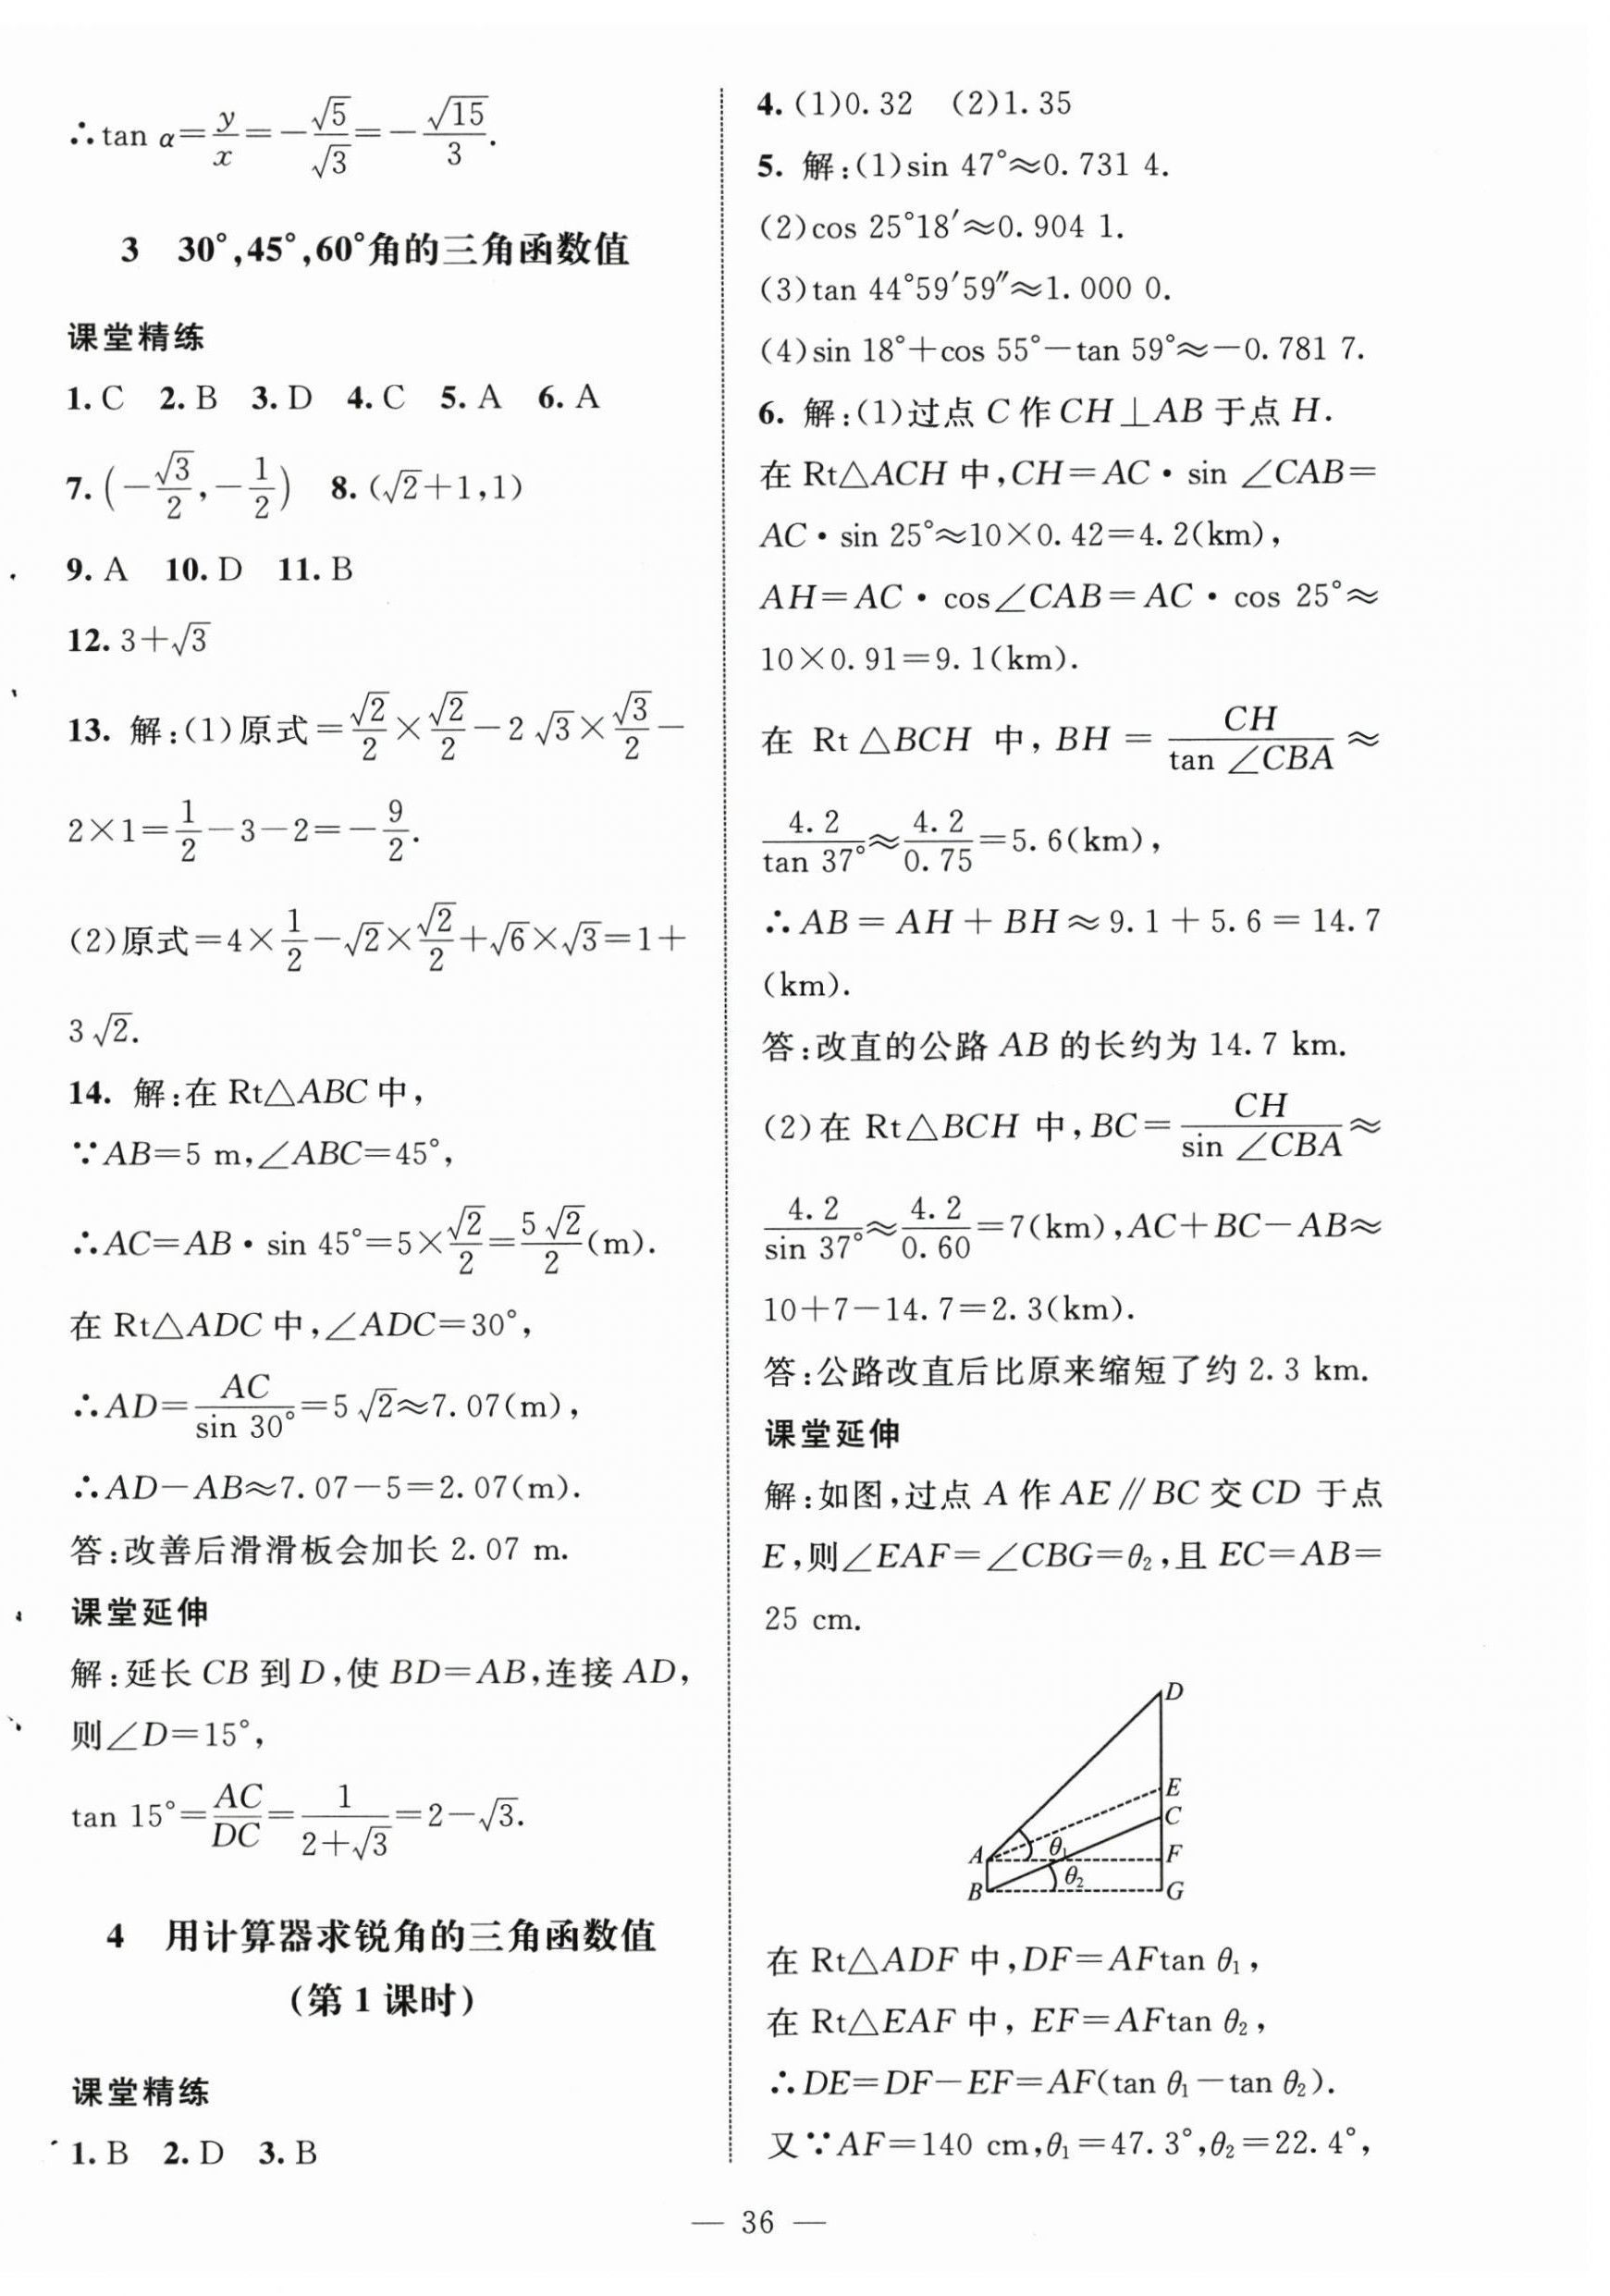 ∴tan α=y/x=-√5/√3=-√15/3.
3 30°,45°,60°角的三角函数值
课堂精练
1. C 2. B 3. D 4. C 5. A 6. A
7. (-√3/2,-1/2) 8. (√2+1,1)
9. A 10. D 11. B
12. 3+√3
13. 解:(1)原式=√2/2×√2/2-2√3×√3/2-
2×1=1/2-3-2=-9/2.
(2)原式=4×1/2-√2×√2/2+√6×√3=1+
3√2.
14. 解:在 Rt△ABC 中,
∵AB=5 m,∠ABC=45°,
∴AC=AB·sin 45°=5×√2/2=5√2/2(m).
在 Rt△ADC 中,∠ADC=30°,
∴AD=AC/sin 30°=5√2≈7.07(m),
∴AD-AB≈7.07-5=2.07(m).
答:改善后滑滑板会加长 2.07 m.
课堂延伸
解:延长 CB 到 D,使 BD=AB,连接 AD,
则∠D=15°,
tan 15°=AC/DC=1/(2+√3)=2-√3.
4 用计算器求锐角的三角函数值
(第 1 课时)
课堂精练
1. B 2. D 3. B
4. (1)0.32 (2)1.35
5. 解:(1)sin 47°≈0.731 4.
(2)cos 25°18′≈0.904 1.
(3)tan 44°59′59″≈1.000 0.
(4)sin 18°+cos 55°-tan 59°≈-0.781 7.
6. 解:(1)过点 C 作 CH⊥AB 于点 H.
在 Rt△ACH 中,CH=AC·sin ∠CAB=
AC·sin 25°≈10×0.42=4.2(km),
AH=AC·cos∠CAB=AC·cos 25°≈
10×0.91=9.1(km).
在 Rt△BCH 中,BH=CH/tan ∠CBA≈
4.2/tan 37°≈4.2/0.75=5.6(km),
∴AB=AH+BH≈9.1+5.6=14.7
(km).
答:改直的公路 AB 的长约为 14.7 km.
(2)在 Rt△BCH 中,BC=CH/sin ∠CBA≈
4.2/sin 37°≈4.2/0.60=7(km),AC+BC-AB≈
10+7-14.7=2.3(km).
答:公路改直后比原来缩短了约 2.3 km.
课堂延伸
解:如图,过点 A 作 AE∥BC 交 CD 于点
E,则∠EAF=∠CBG=θ₂,且 EC=AB=
25 cm.
D
E
C
A θ₁ F
B θ₂ G
在 Rt△ADF 中,DF=AFtan θ₁,
在 Rt△EAF 中,EF=AFtan θ₂,
∴DE=DF-EF=AF(tan θ₁-tan θ₂).
又∵AF=140 cm,θ₁=47.3°,θ₂=22.4°,
— 36 —